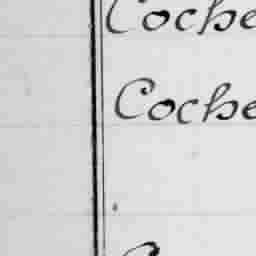 Coche
Coche